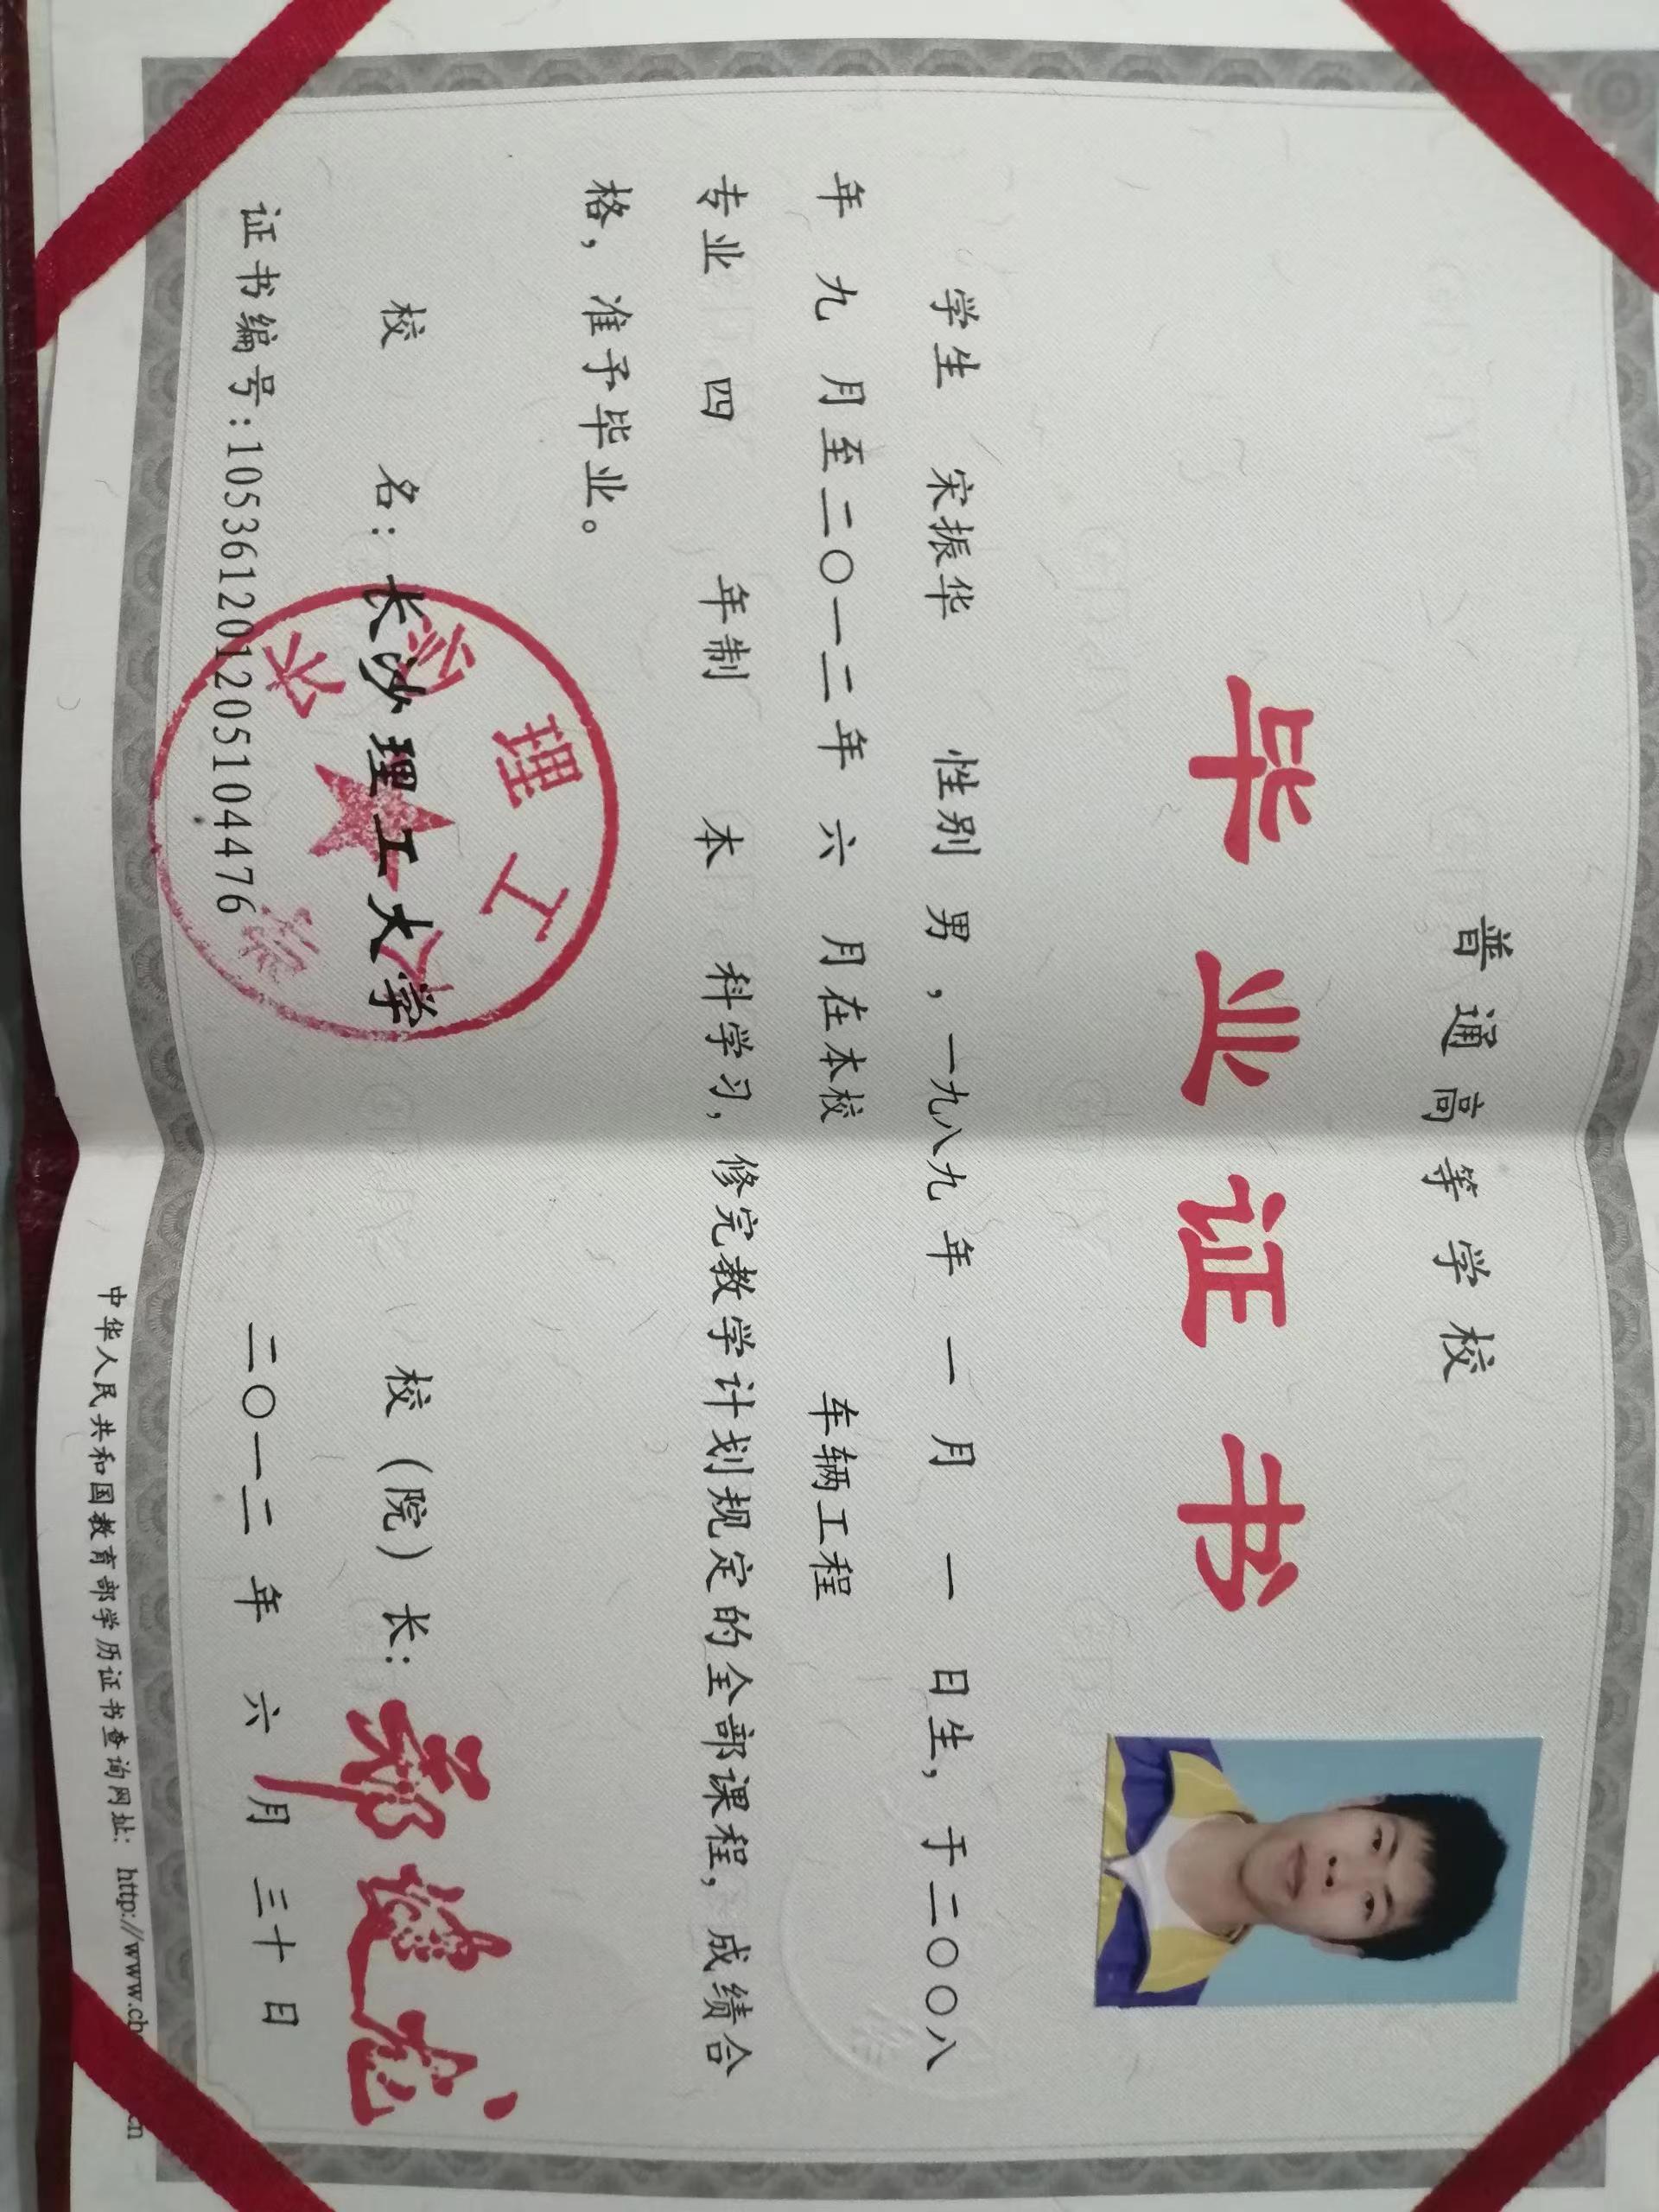 普通高等学校
毕业证书
学生 宋振华 性别 男，一九八九年 一 月 一 日生，于二〇〇八
年 九 月至二〇一二年 六 月在本校 车辆工程
专业 四 年制 本 科学习，修完教学计划规定的全部课程，成绩合
格，准予毕业。
校 名：长沙理工大学 校（院）长：郑健龙
长沙理工大学
证书编号：105361201205104476 二〇一二 年 六 月 三十 日
中华人民共和国教育部学历证书查询网址： http://www.ch